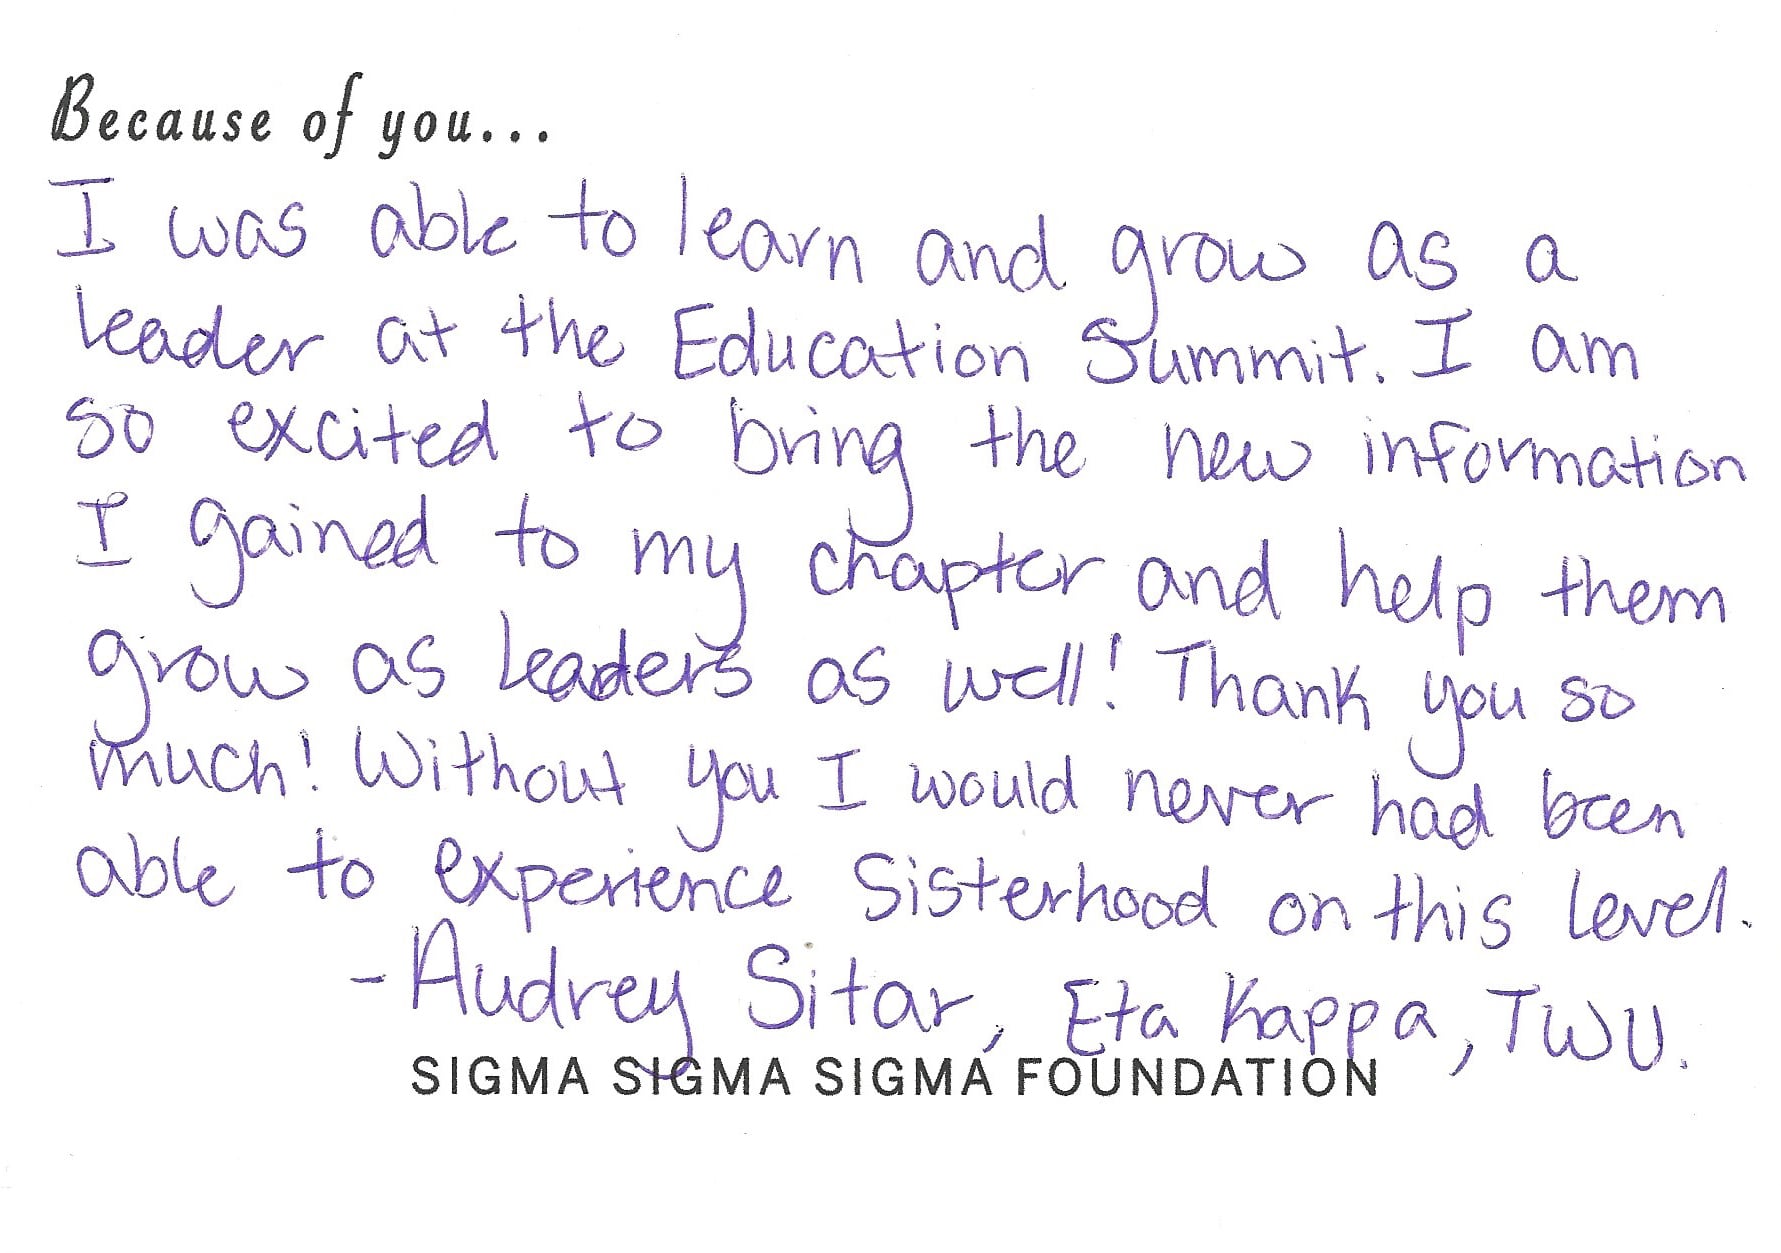 Because of you...
I was able to learn and grow as a
leader at the Education Summit. I am
so excited to bring the new information
I gained to my chapter and help them
grow as leaders as well! Thank you so
much! Without you I would never had been
able to experience Sisterhood on this level.
-Audrey Sitar, Eta Kappa, TWU.
SIGMA SIGMA SIGMA FOUNDATION